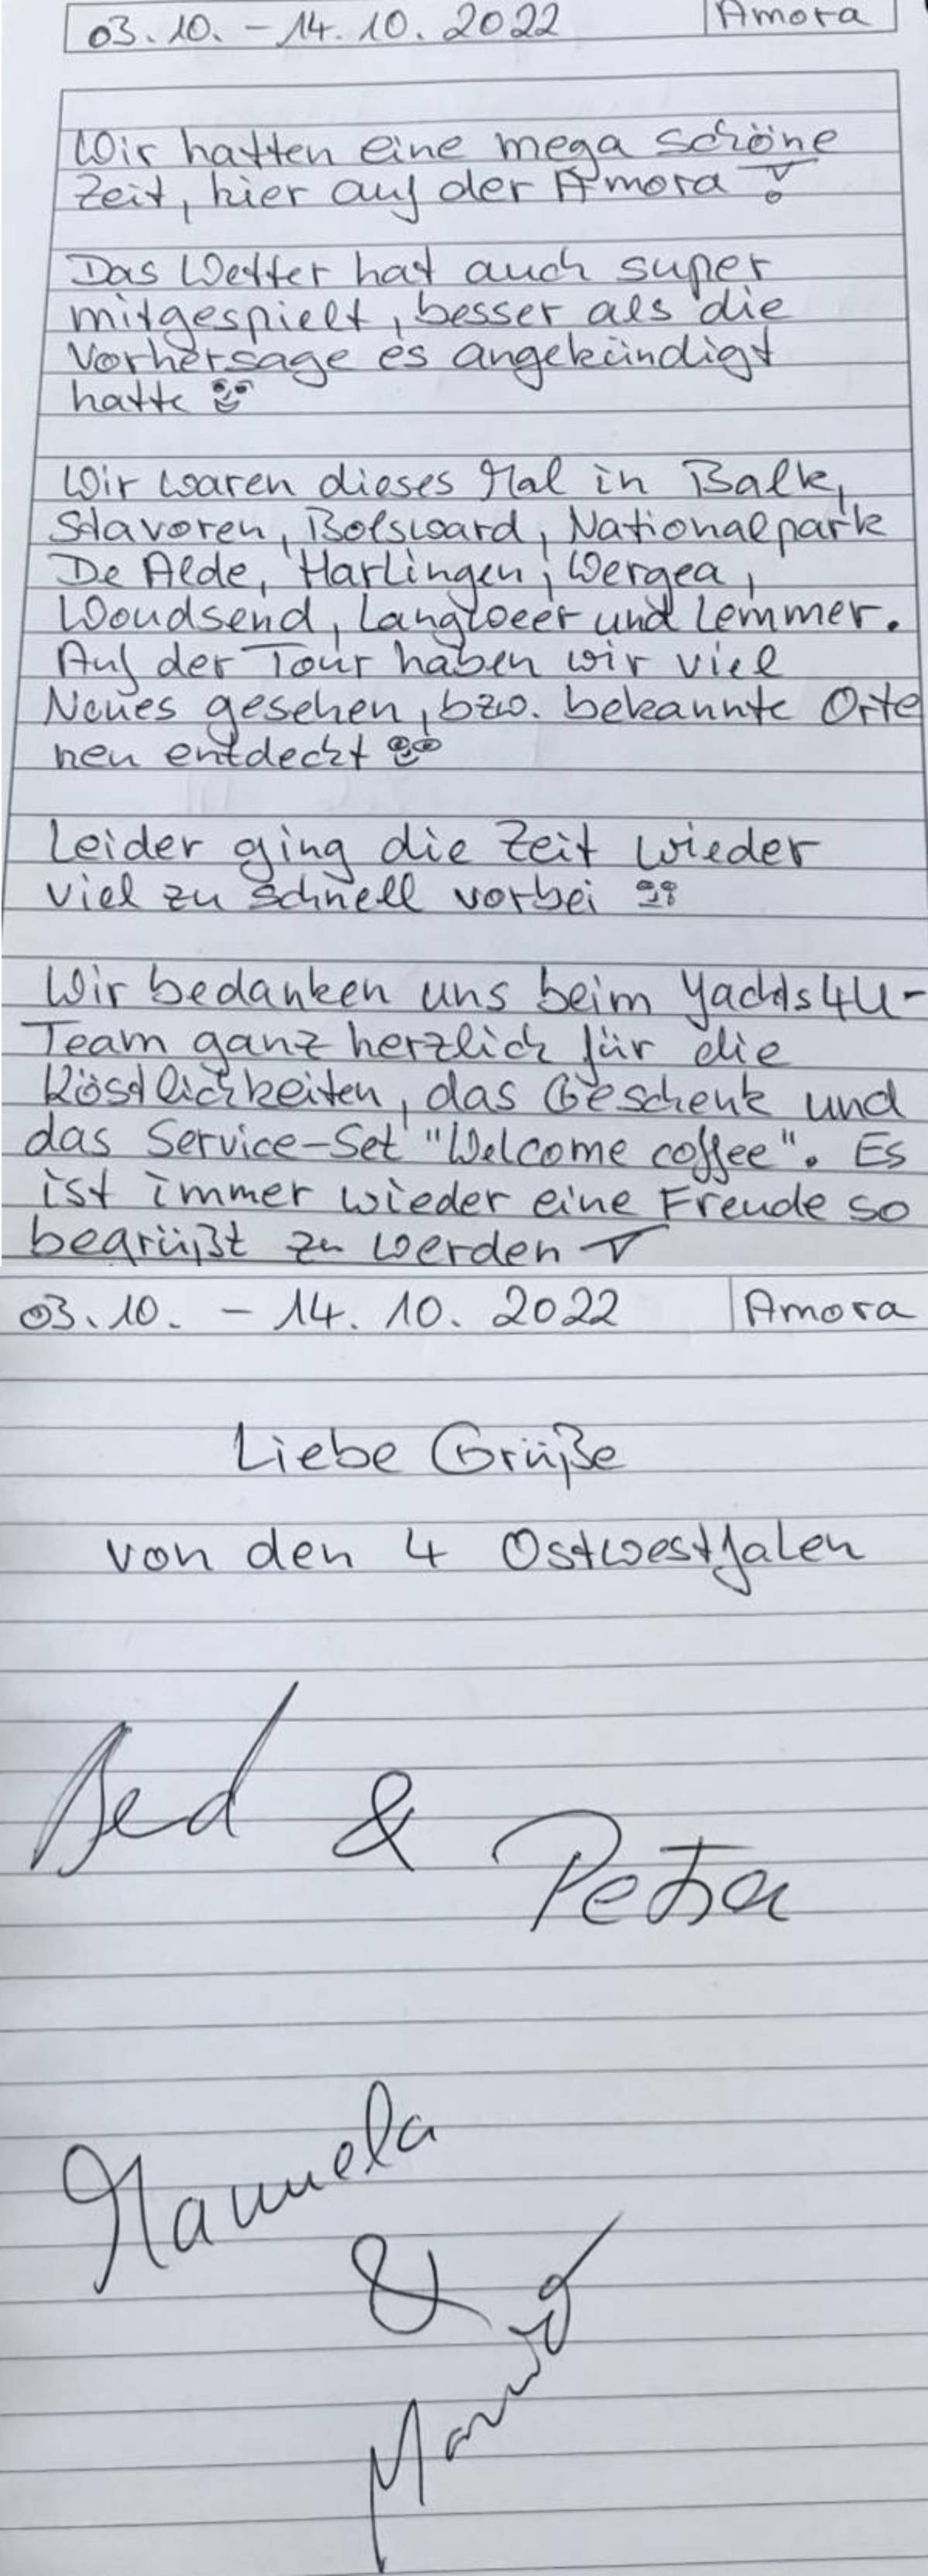 03.10. - 14.10. 2022 Amora
Wir hatten eine mega schöne
Zeit, hier auf der Amora!
Das Wetter hat auch super
mitgespielt, besser als die
Vorhersage es angekündigt
hatte
Wir waren dieses Mal in Balk,
Stavoren, Bolsward, Nationalpark
De Alde, Harlingen, Wergea,
Woudsend, Langweer und Lemmer.
Auf der Tour haben wir viel
Neues gesehen, bzw. bekannte Orte
neu entdeckt
Leider ging die Zeit wieder
viel zu schnell vorbei
Wir bedanken uns beim Yachts4U-
Team ganz herzlich für die
Köstlichkeiten, das Geschenk und
das Service-Set "Welcome coffee". Es
ist immer wieder eine Freude so
begrüßt zu werden
03.10. - 14. 10. 2022 Amora
Liebe Grüße
von den 4 Ostwestfalen
&
Petra
Manuela
&